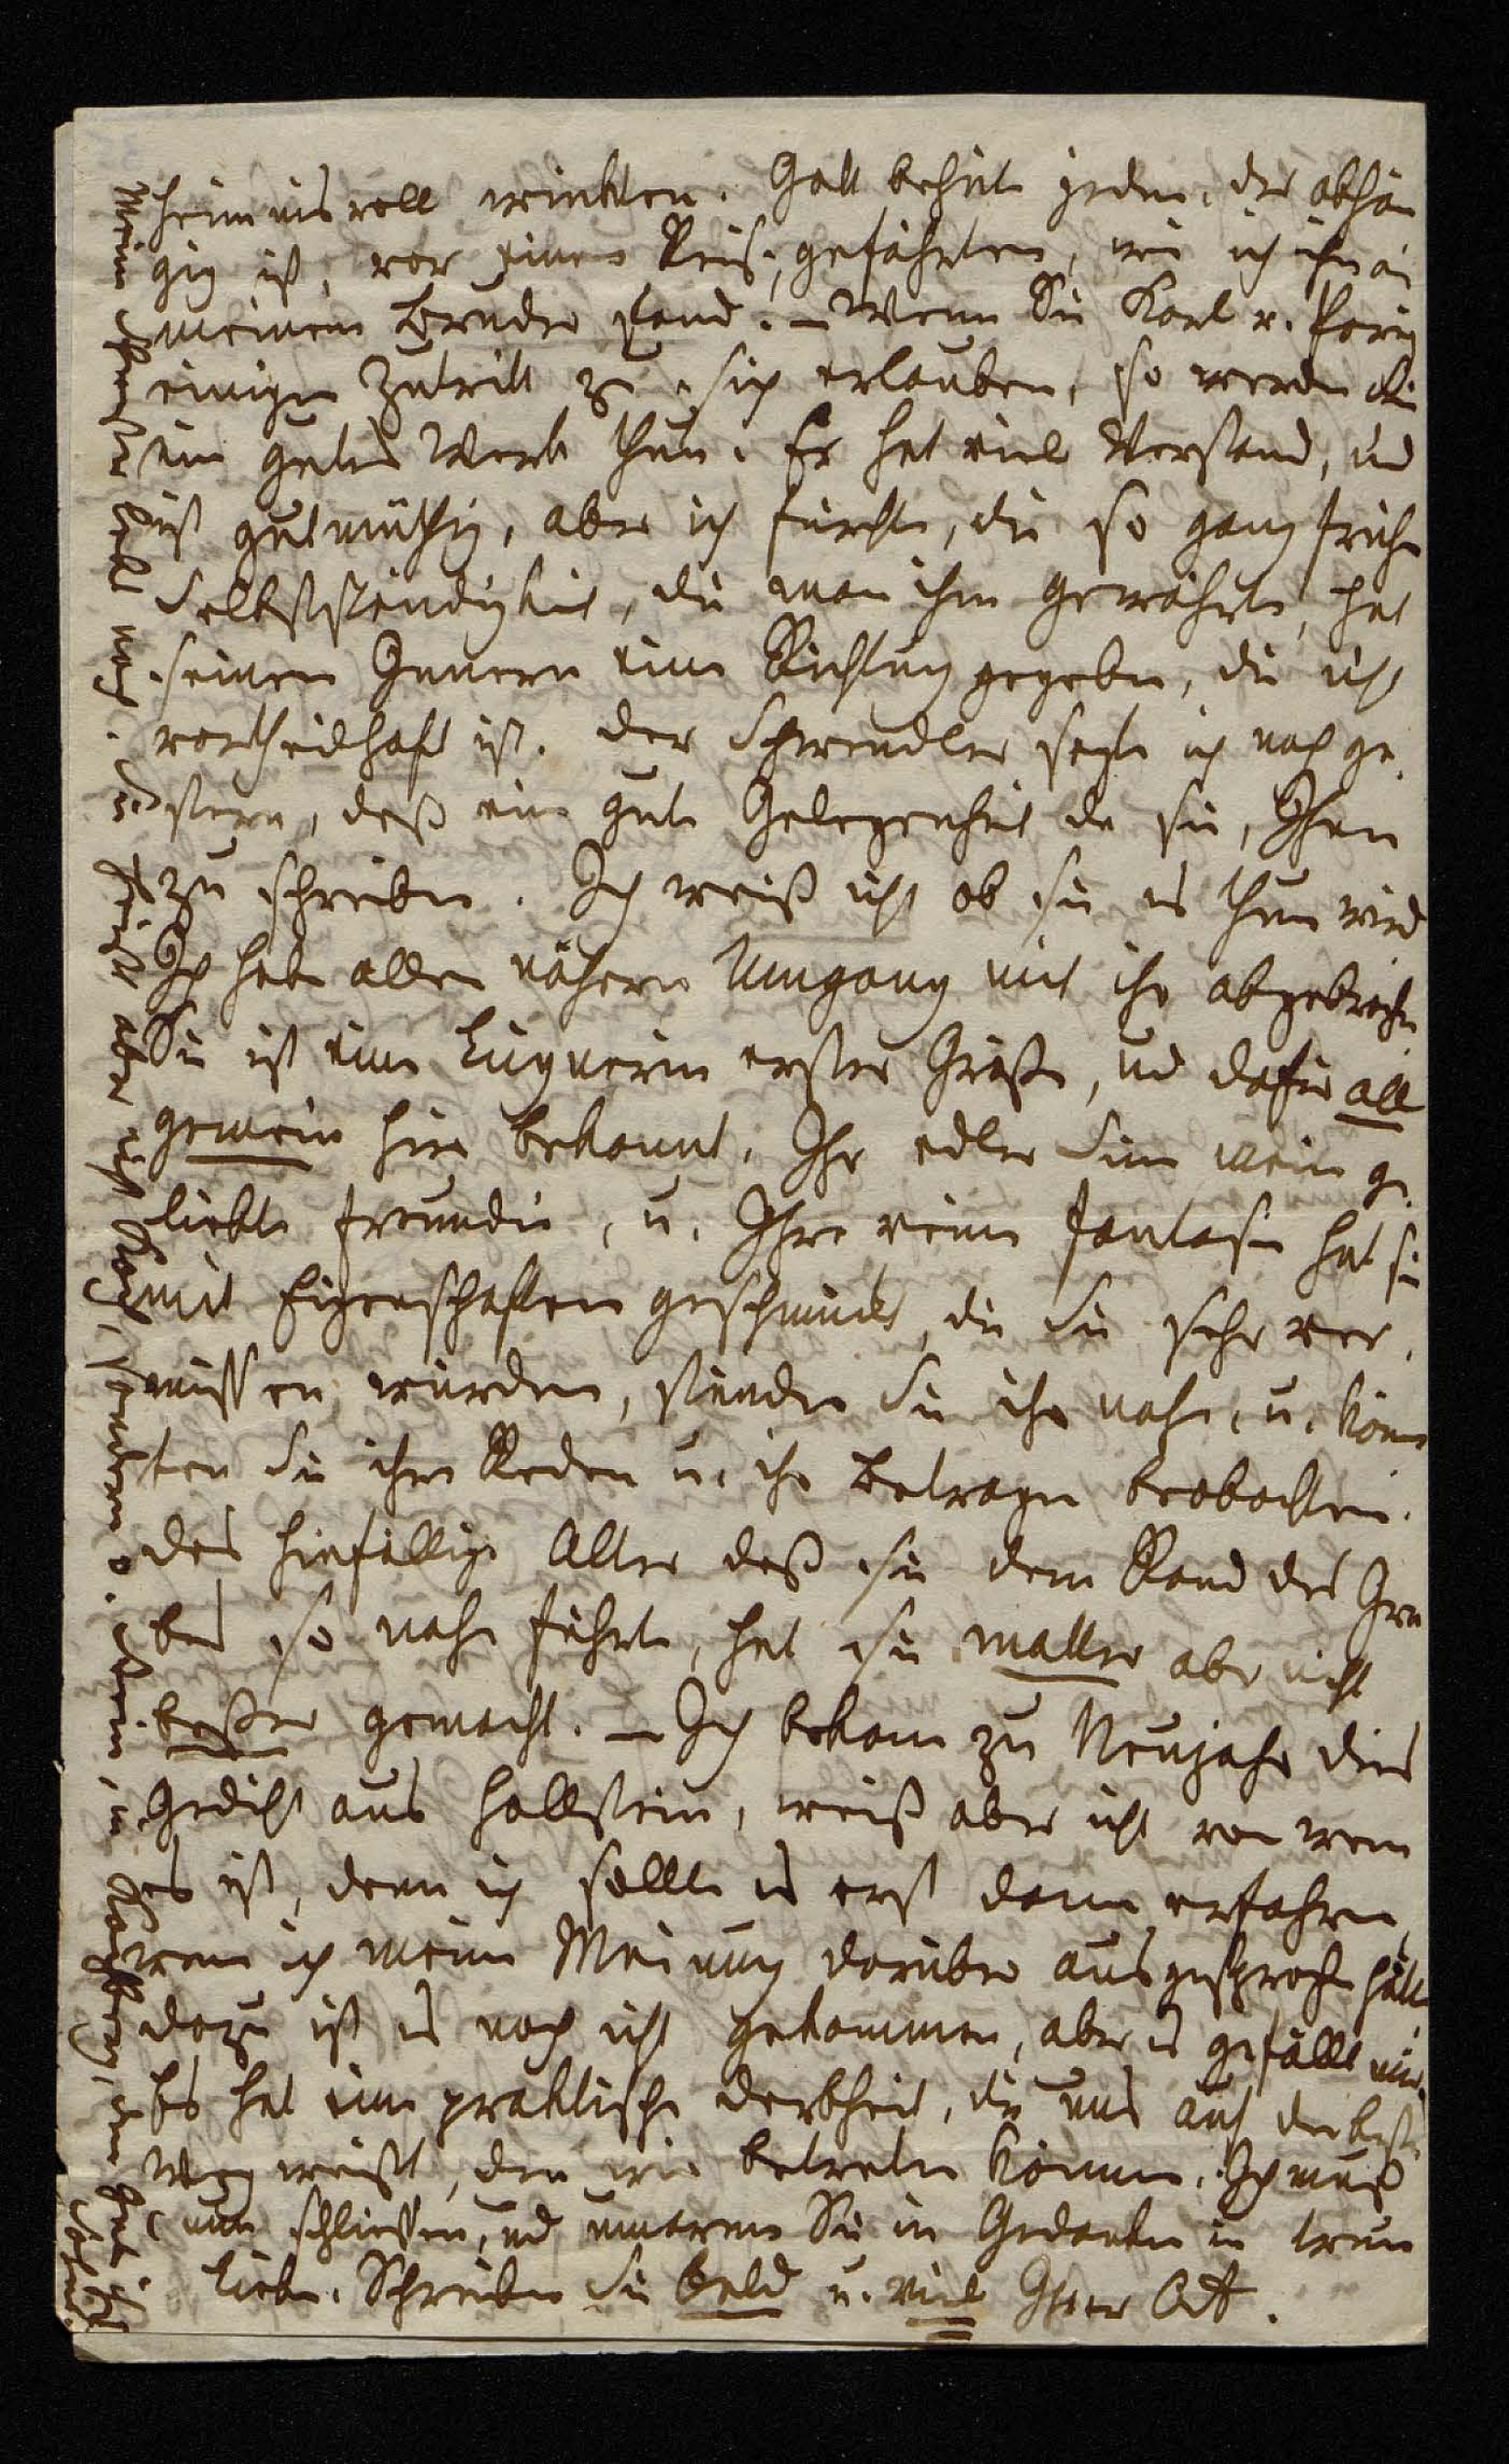 heimnisvoll winkten. Gott behüte jeden, der abhän
gig ist, vor einen Reise,gefährten, wie ich ihn an
meinem Bruder fand. – Wenn Sie Karl v.
einigen Zutritt zu sich erlauben, so werden Sie
ein gutes Werk thun. Er hat viel Verstand, und
ist gutmüthig, aber ich fürchte, die so ganz frühe
Selbstständigkeit, die man ihm gewährte, hat
seinem Innern eine Richtung gegeben, die nicht
vortheilhaft ist. Der Schwendler sagte ich noch ge,
stern, daß eine gute Gelegenheit da sei, Ihnen
zu schreiben. Ich weiß nicht ob sie es thun wird
Ich habe allen nähern Umgang mit ihr abgebrochen
Sie ist eine Lügnerin erster Größe, und dafür all
gemein hier bekannt. Ihr edler Sinn meine ge,
liebte Freundin, u. Ihre reine Fantasie hat sie
mit Eigenschaften geschmückt, die Sie sehr ver,
missen würden, stünden Sie ihr nahe, u. könn
ten Sie ihre Reden u. ihr Betragen beobachten.
Das hinfällige Alter daß sie dem Rand des Gra
bes so nahe führte, hat sie matter aber nicht
beßer gemacht. – Ich bekam zu Neujahr dies
Gedicht aus Hollstein, weiß aber nicht von wem
es ist, denn ich sollte es erst dann erfahren,
wenn ich meine Meinung darüber ausgesprochen hätte
dazu ist es noch nicht gekommen, aber es gefällt mir.
Es hat eine praktische Derbheit, die uns auf den besten
Weg weißt, den wir betreten können. Ich muß
nun schließen, und umarme Sie in Gedanken in treue
Liebe. Schreiben Sie bald u. viel Ihrer
Mein lebt noch. Er heißt aber nicht sondern